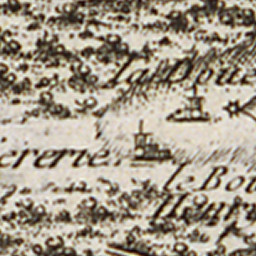 la Doue
ererie
le Bou
Henri